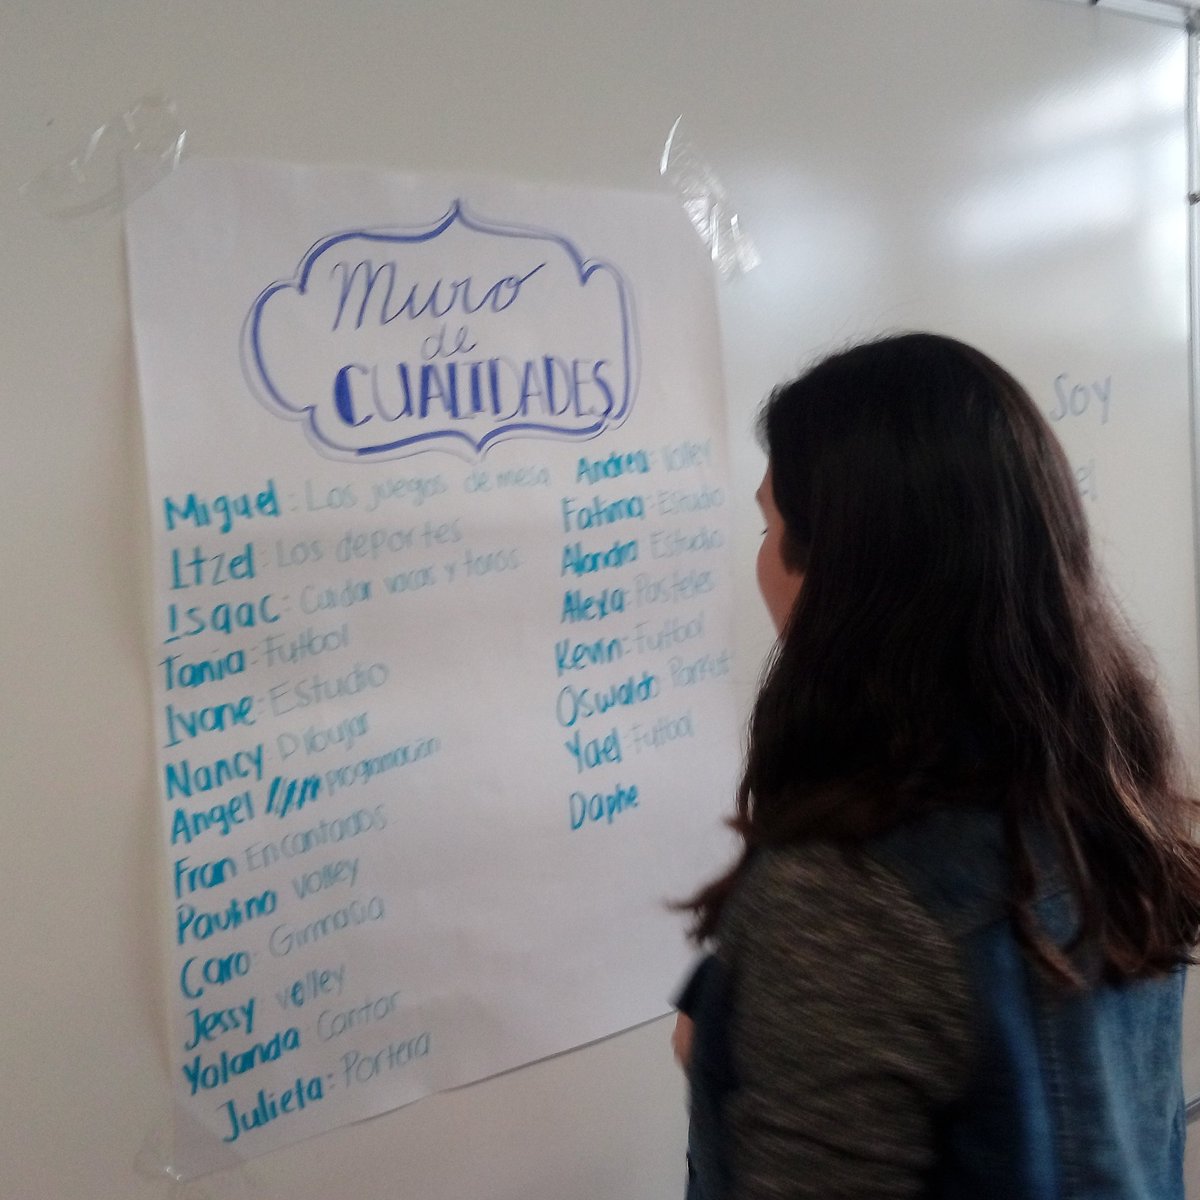 Muro
de
CUALIDADES
Miguel: Los juegos de mesa
Itzel: Los deportes
Isaac: Cuidar vacas y toros
Tania: Futbol
Ivone: Estudio
Nancy Dibujar
Angel programación
Fran Encantados
Paulina volley
Caro: Gimnasia
Jessy volley
Yolanda Cantar
Julieta: Portera
Andrea: Volley
Fatima: Estudio
Alondra Estudio
Alexa: Pasteles
Kevin: Futbol
Oswaldo Parkut
Yael Futbol
Daphe
Soy